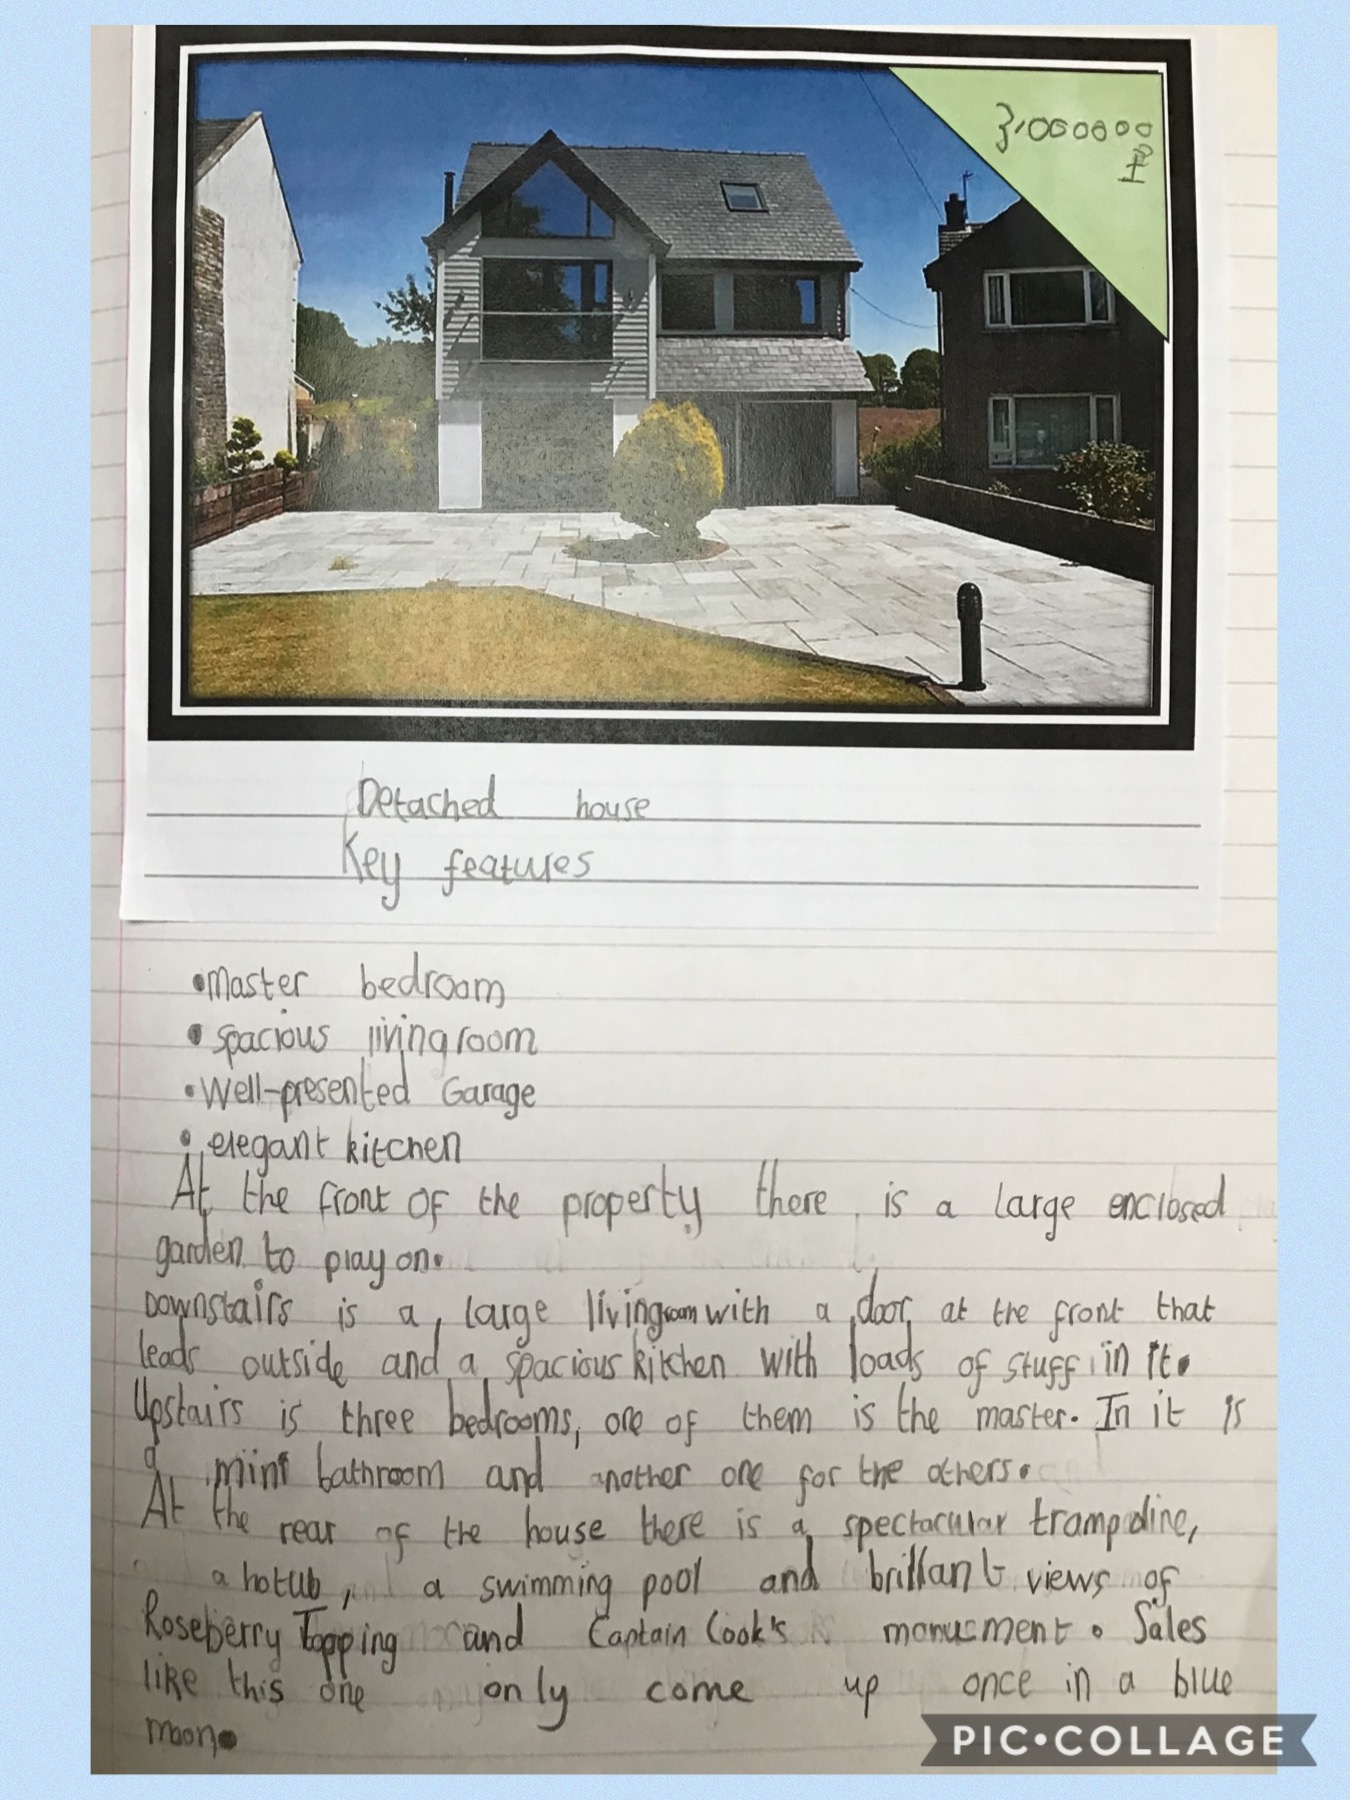 3,000000
£
Detached house
Key features
•Master bedroom
• spacious livingroom
•Well-presented Garage
• elegant kitchen
At the front of the property there is a large enclosed
garden to play on.
Downstairs is a large livingroom with a door at the front that
leads outside and a spacious kitchen with loads of stuff in it.
Upstairs is three bedrooms, one of them is the master. In it is
a mini bathroom and another one for the others.
At the rear of the house there is a spectacular trampoline,
a hotub, a swimming pool and brillant views of
Roseberry Topping and Captain Cook's monument. Sales
like this one only come up once in a blue
moon.
PIC•COLLAGE